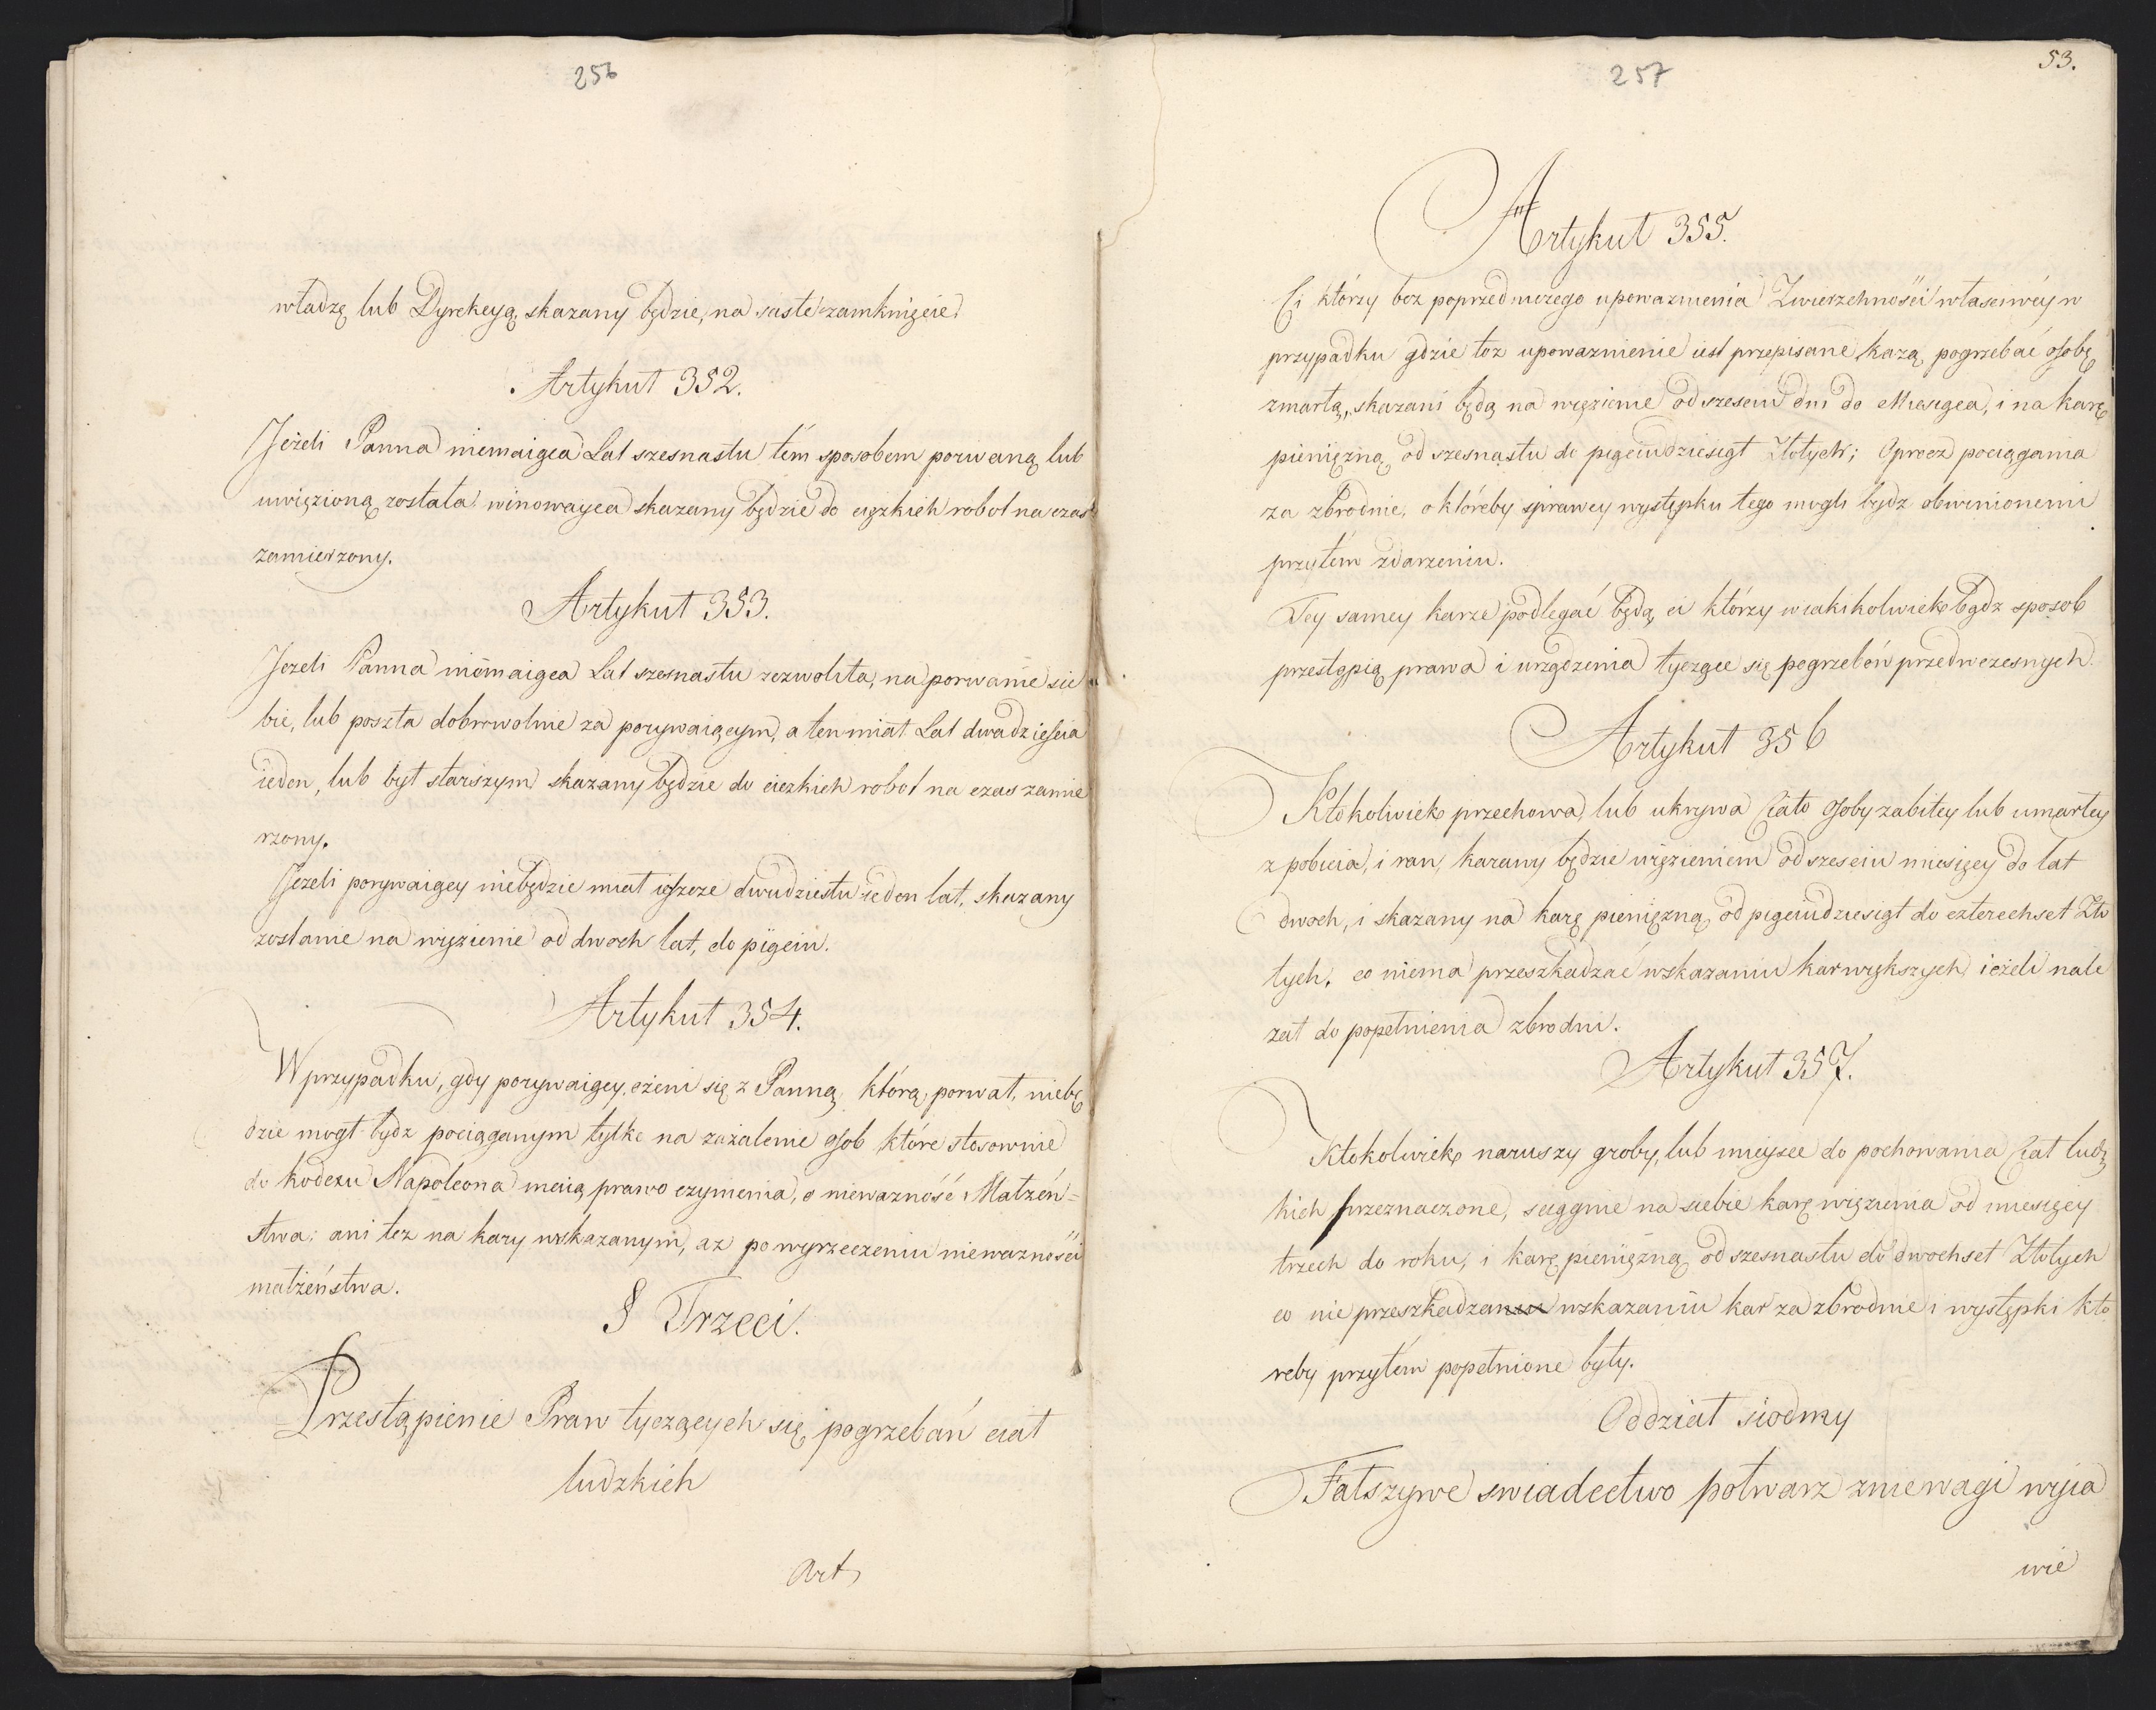 256
władzę lub Dyrekcyą, skazany będzie, na ściste zamknięcie.
Artykuł 352.
Jeżeli Panna niemaiąca Lat szesnastu tém sposobem porwaną lub
uwięzioną została winowayca skazany będzie do ciężkich robot na czas
zamierzony.
Artykuł 353.
Jezeli Panna niemaiąca Lat szesnastu zezwoliła, na porwanie sie
bie, lub poszła dobrowolnie za porywaiącym, a ten miał Lat dwadzieścia
ieden, lub był starszym skazany będzie do cięzkich robot na czas zamie
rzony.
Jezeli porywaiący niebędzie miał ieszcze dwudziestu ieden lat, skazany
zostanie na więzienie od dwoch lat, do pięciu.
Artykuł 354.
W przypadku, gdy porywaiący, ożeni się z Panną, którą, porwał, niebę
dzie mogł bydz pociąganym tylko na zażalenie osob które stosownie
do kodexu Napoleona maią prawo czynienia, o nieważność Małżeń=
stwa; ani tez na kary wskazanym, az po wyrzeczeniu niewazności
małżeństwa.
§ Trzeci.
Przestąpienie Praw tyczących się pogrzebań ciał
ludzkich
Art
257
53.
Artykuł 355.
Ci którzy bez poprzedniczego upowaznienia Zwierzchności własciwéy w
przypadku gdzie toz upowaznienie iest przepisane, kazą pogrzebać osobę
zmarłą, skazani będą na więzienie od szesciu dni do Miesiąca, i na karę
pieniężną od szesnastu do pięciudziesiąt Złotych; Oprocz pociągania
za zbrodnie, o któreby sprawcy występku tego mogli bydz obwinionemi
przytém zdarzeniu.
Tey samey karze podlegać będą, ci którzy w iakikolwiek bądz sposob
przestąpią prawa i urządzenia tyczące się pogrzebów przedwczesnych.
Artykuł 356
Ktokolwiek przechowa, lub ukrywa Ciało osoby zabitey lub umarłey
z pobicia, i ran, karany będzie więzieniem od szesciu miesięcy do lat
dwoch, i skazany na karę pieniężną, od pięciudziesiąt do czterechset Zło
tych, co niema przeszkadzać wskazaniu kar większych ieżeli nale
zał do popełnienia zbrodni.
Artykuł 357.
Ktokolwiek naruszy groby, lub mieysce do pochowania Ciał ludz
kich przeznaczone, sciągnie na siebie karę więzienia od miesięcy
trzech do roku, i karę pieniężną od szesnastu do dwochset Złotych
co nie przeszkadza wskazaniu kar za zbrodnie i występki kto
reby przytém popełnione były.
Oddział siodmy
Fałszywe swiadectwo potwarz zniewagi wyia
wie